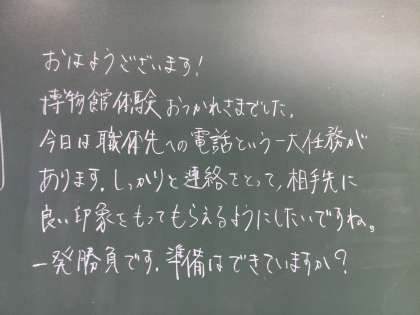 おはようございます!
博物館体験おつかれさまでした。
今日は職体先への電話という一大任務が
あります。しっかりと連絡をとって、相手先に
良い印象をもってもらえるようにしたいですね。
一発勝負です。準備はできていますか?